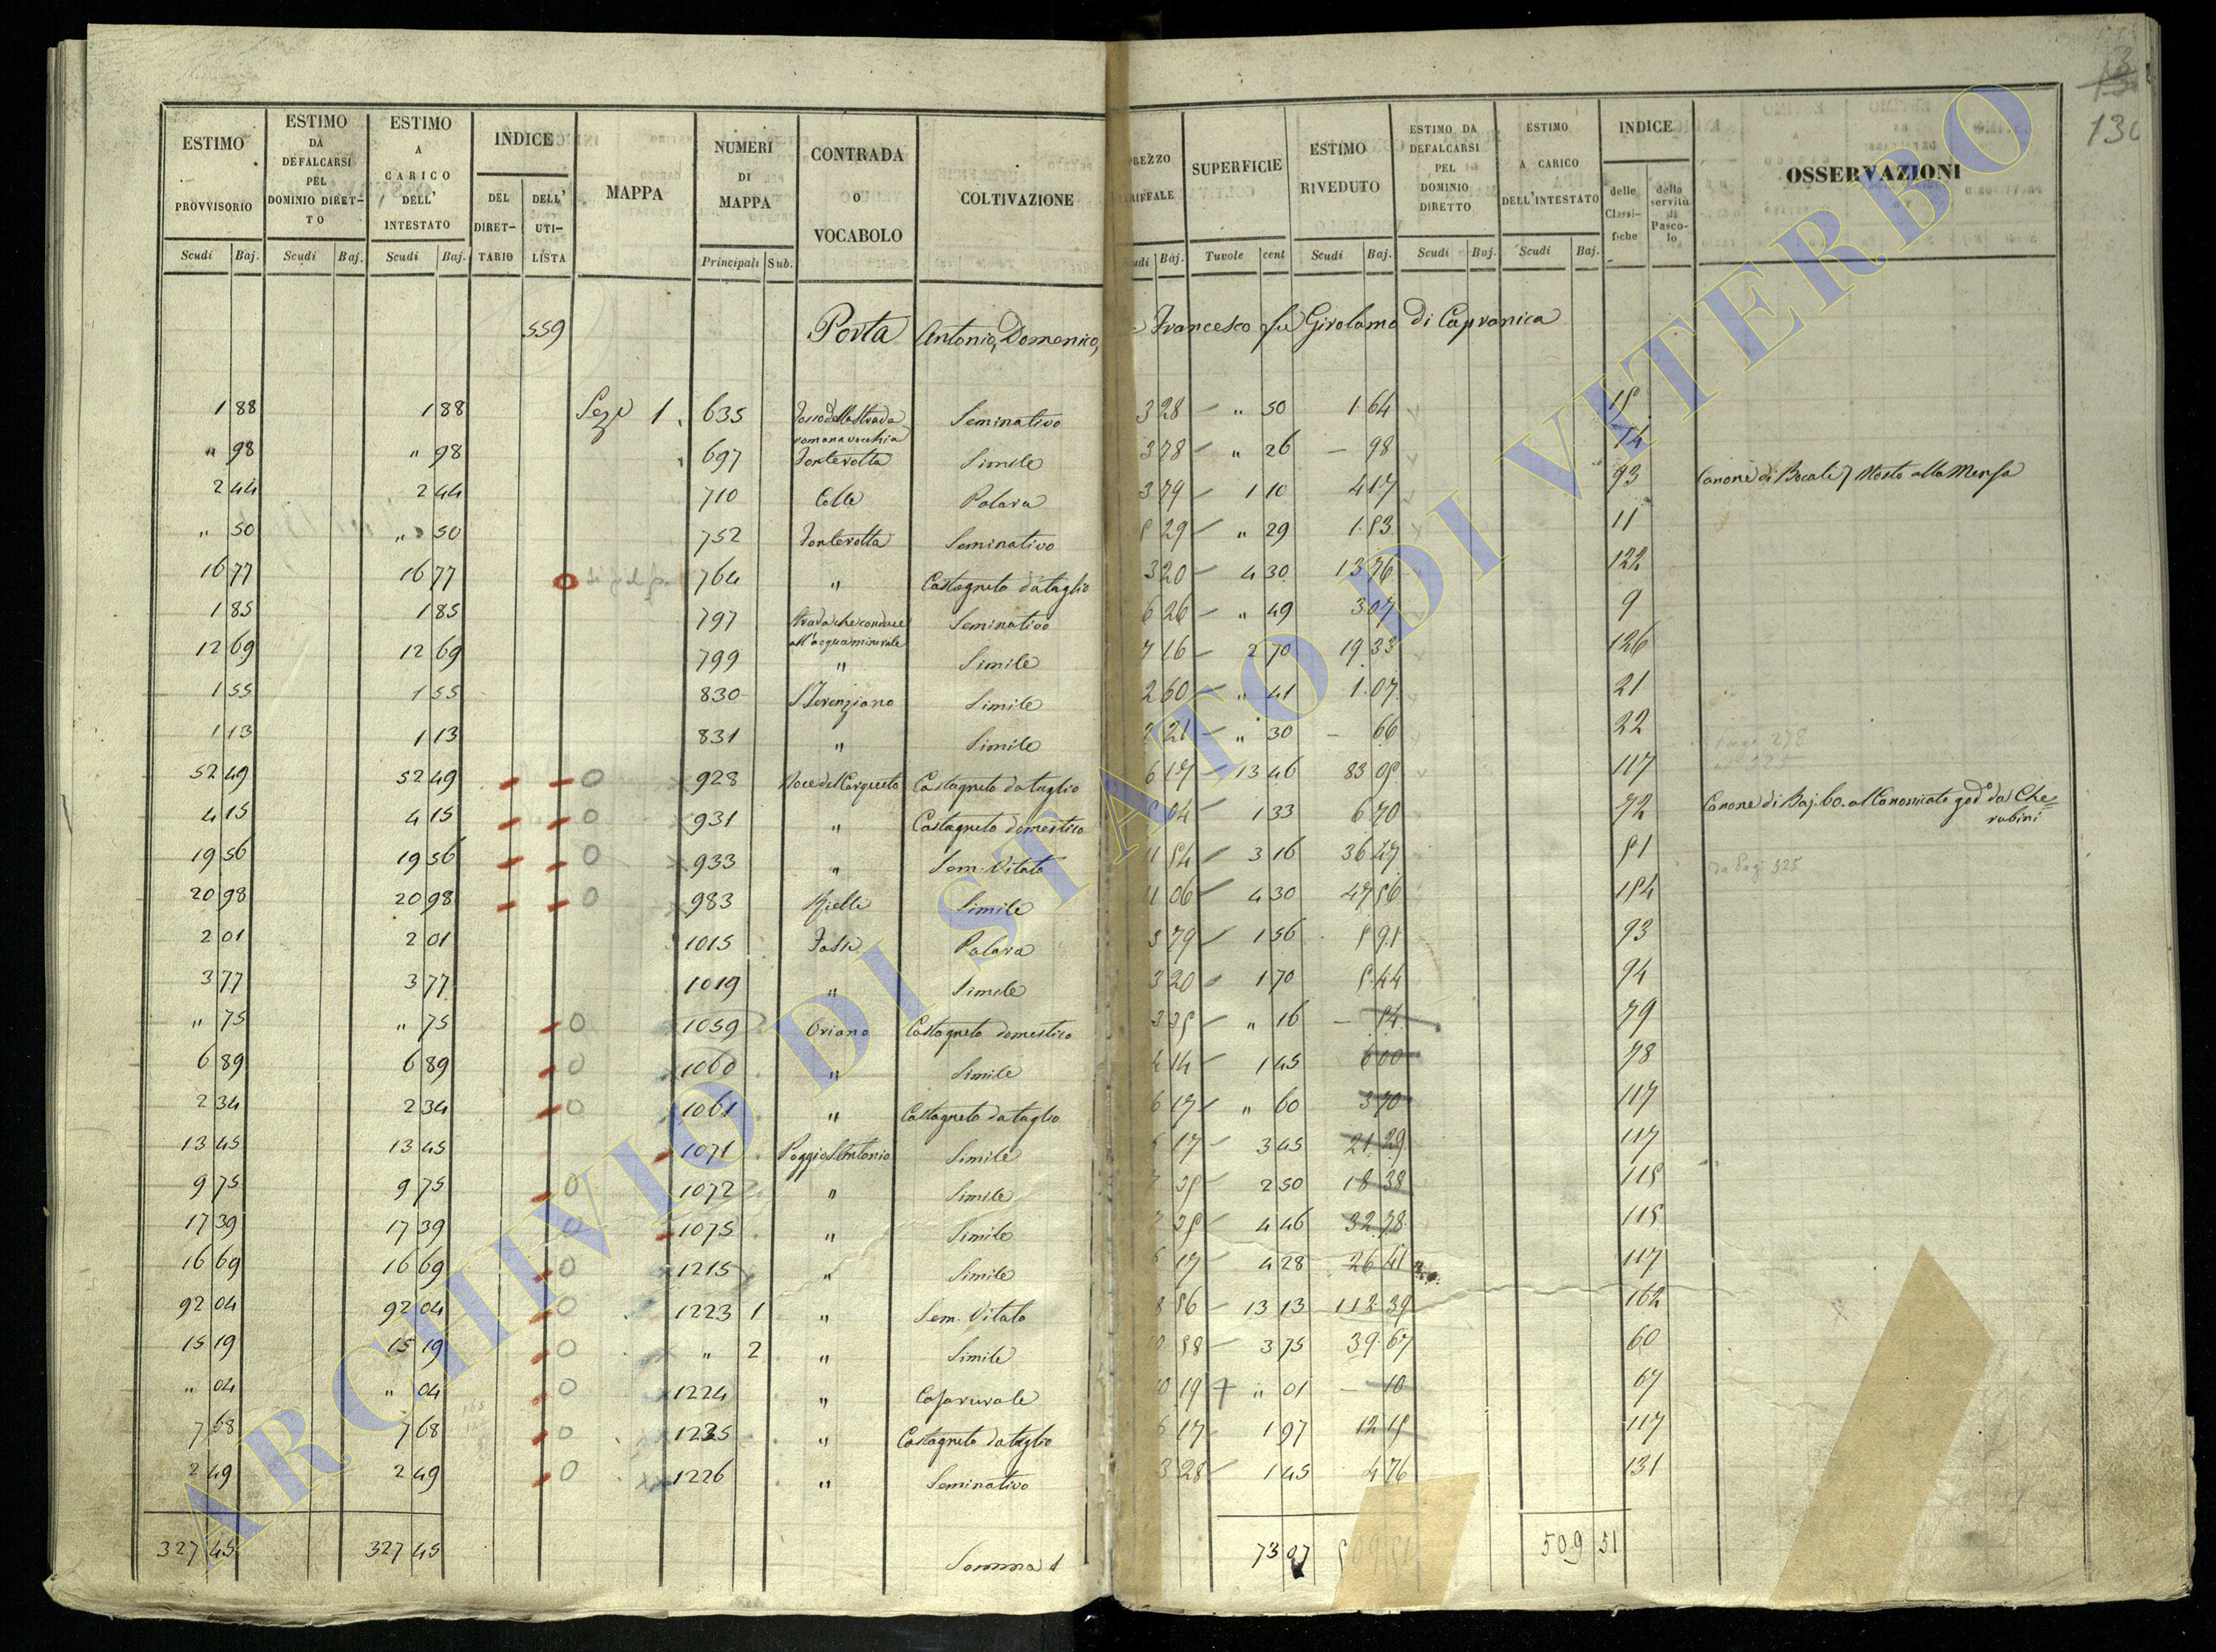 ESTIMO PROVVISORIO Scudi Baj.
ESTIMO DA DEFALCARSI PEL DOMINIO DIRET-TO Scudi Baj.
ESTIMO A CARICO DELL' INTESTATO Scudi Baj.
INDICE DEL DIRET-TARIO DELL' UTI-LISTA
MAPPA
NUMERI DI MAPPA Principali Sub.
CONTRADA O VOCABOLO
COLTIVAZIONE
SUPERFICIE Tavole cent
ESTIMO RIVEDUTO Scudi Baj.
ESTIMO DA DEFALCARSI PEL DOMINIO DIRETTO Scudi Baj.
ESTIMO A CARICO DELL'INTESTATO Scudi Baj.
INDICE delle Classi-fiche della servitù di Pasco-lo
OSSERVAZIONI
130
559 Porta Antonio, Domenico, e Francesco fù Girolamo di Capranica
1 88 1 88 Sez.e 1. 635 Fosso della Strada romana vecchia Seminativo 3 28 " 50 1 64 15
" 98 " 98 697 Fonterotta Simile 3 78 " 26 — 98 14
2 44 2 44 710 Colle Palara 3 79 1 10 4 17 93 Canone di Bocale 7 Mosto alla Mensa
" 50 " 50 752 Fonterotta Seminativo 5 29 " 29 1 53 11
16 77 16 77 764 " Castagneto da taglio 3 20 4 30 13 76 122
1 85 1 85 797 Strada che conduce all'acqua minerale Seminativo 6 26 " 49 3 07 9
12 69 12 69 799 " Simile 7 16 2 70 19 33 126
1 55 1 55 830 S. Terenziano Simile 2 60 " 41 1 07 21
1 13 1 13 831 " Simile 2 21 " 30 — 66 22
52 49 52 49 928 Noce del Cerqueto Castagneto da taglio 6 17 13 46 83 05 117
4 15 4 15 931 " Castagneto domestico 5 04 1 33 6 70 72 Canone di Baj. 60. al Canonicato god. da Che=rubini
19 56 19 56 933 " Sem. Vitato 11 54 3 16 36 47 51
20 98 20 98 983 Rielle Simile 11 06 4 30 47 56 154
2 01 2 01 1015 Palara 3 79 1 56 5 91 93
3 77 3 77 1019 " Simile 3 20 1 70 5 44 94
" 75 " 75 1059 Oriano Castagneto domestico 3 35 " 16 — 54 79
6 89 6 89 1060 " Simile 4 14 1 45 6 00 78
2 34 2 34 1061 " Castagneto da taglio 6 17 " 60 3 70 117
13 45 13 45 1071 Poggio S. Antonio Simile 6 17 3 45 21 29 117
9 75 9 75 1072 " Simile 7 35 2 50 18 38 115
17 39 17 39 1075 " Simile 7 35 4 46 32 78 115
16 69 16 69 1215 " Simile 6 17 4 28 26 41 117
92 04 92 04 1223 1 " Sem. Vitato 8 56 13 13 112 39 162
15 19 15 19 " 2 " Simile 10 58 3 75 39 67 60
" 04 " 04 1224 " Casa rurale 10 19 " 01 — 10 67
7 68 7 68 1225 " Castagneto da taglio 6 17 1 97 12 15 117
2 49 2 49 1226 " Seminativo 3 28 1 45 4 76 131
327 45 327 45 Somma 73 07 509 51
ARCHIVIO DI STATO DI VITERBO